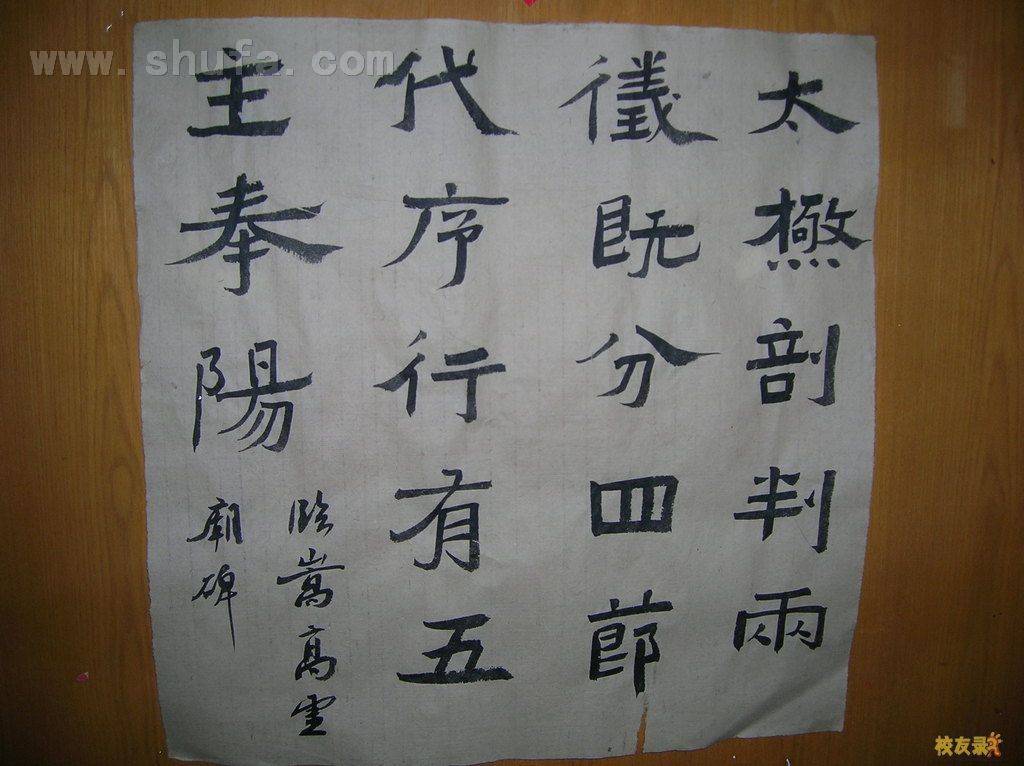 太極剖判兩
儀既分四節
代序行有五
主奉陽
臨嵩高靈
廟碑
www.shufa.com
校友录